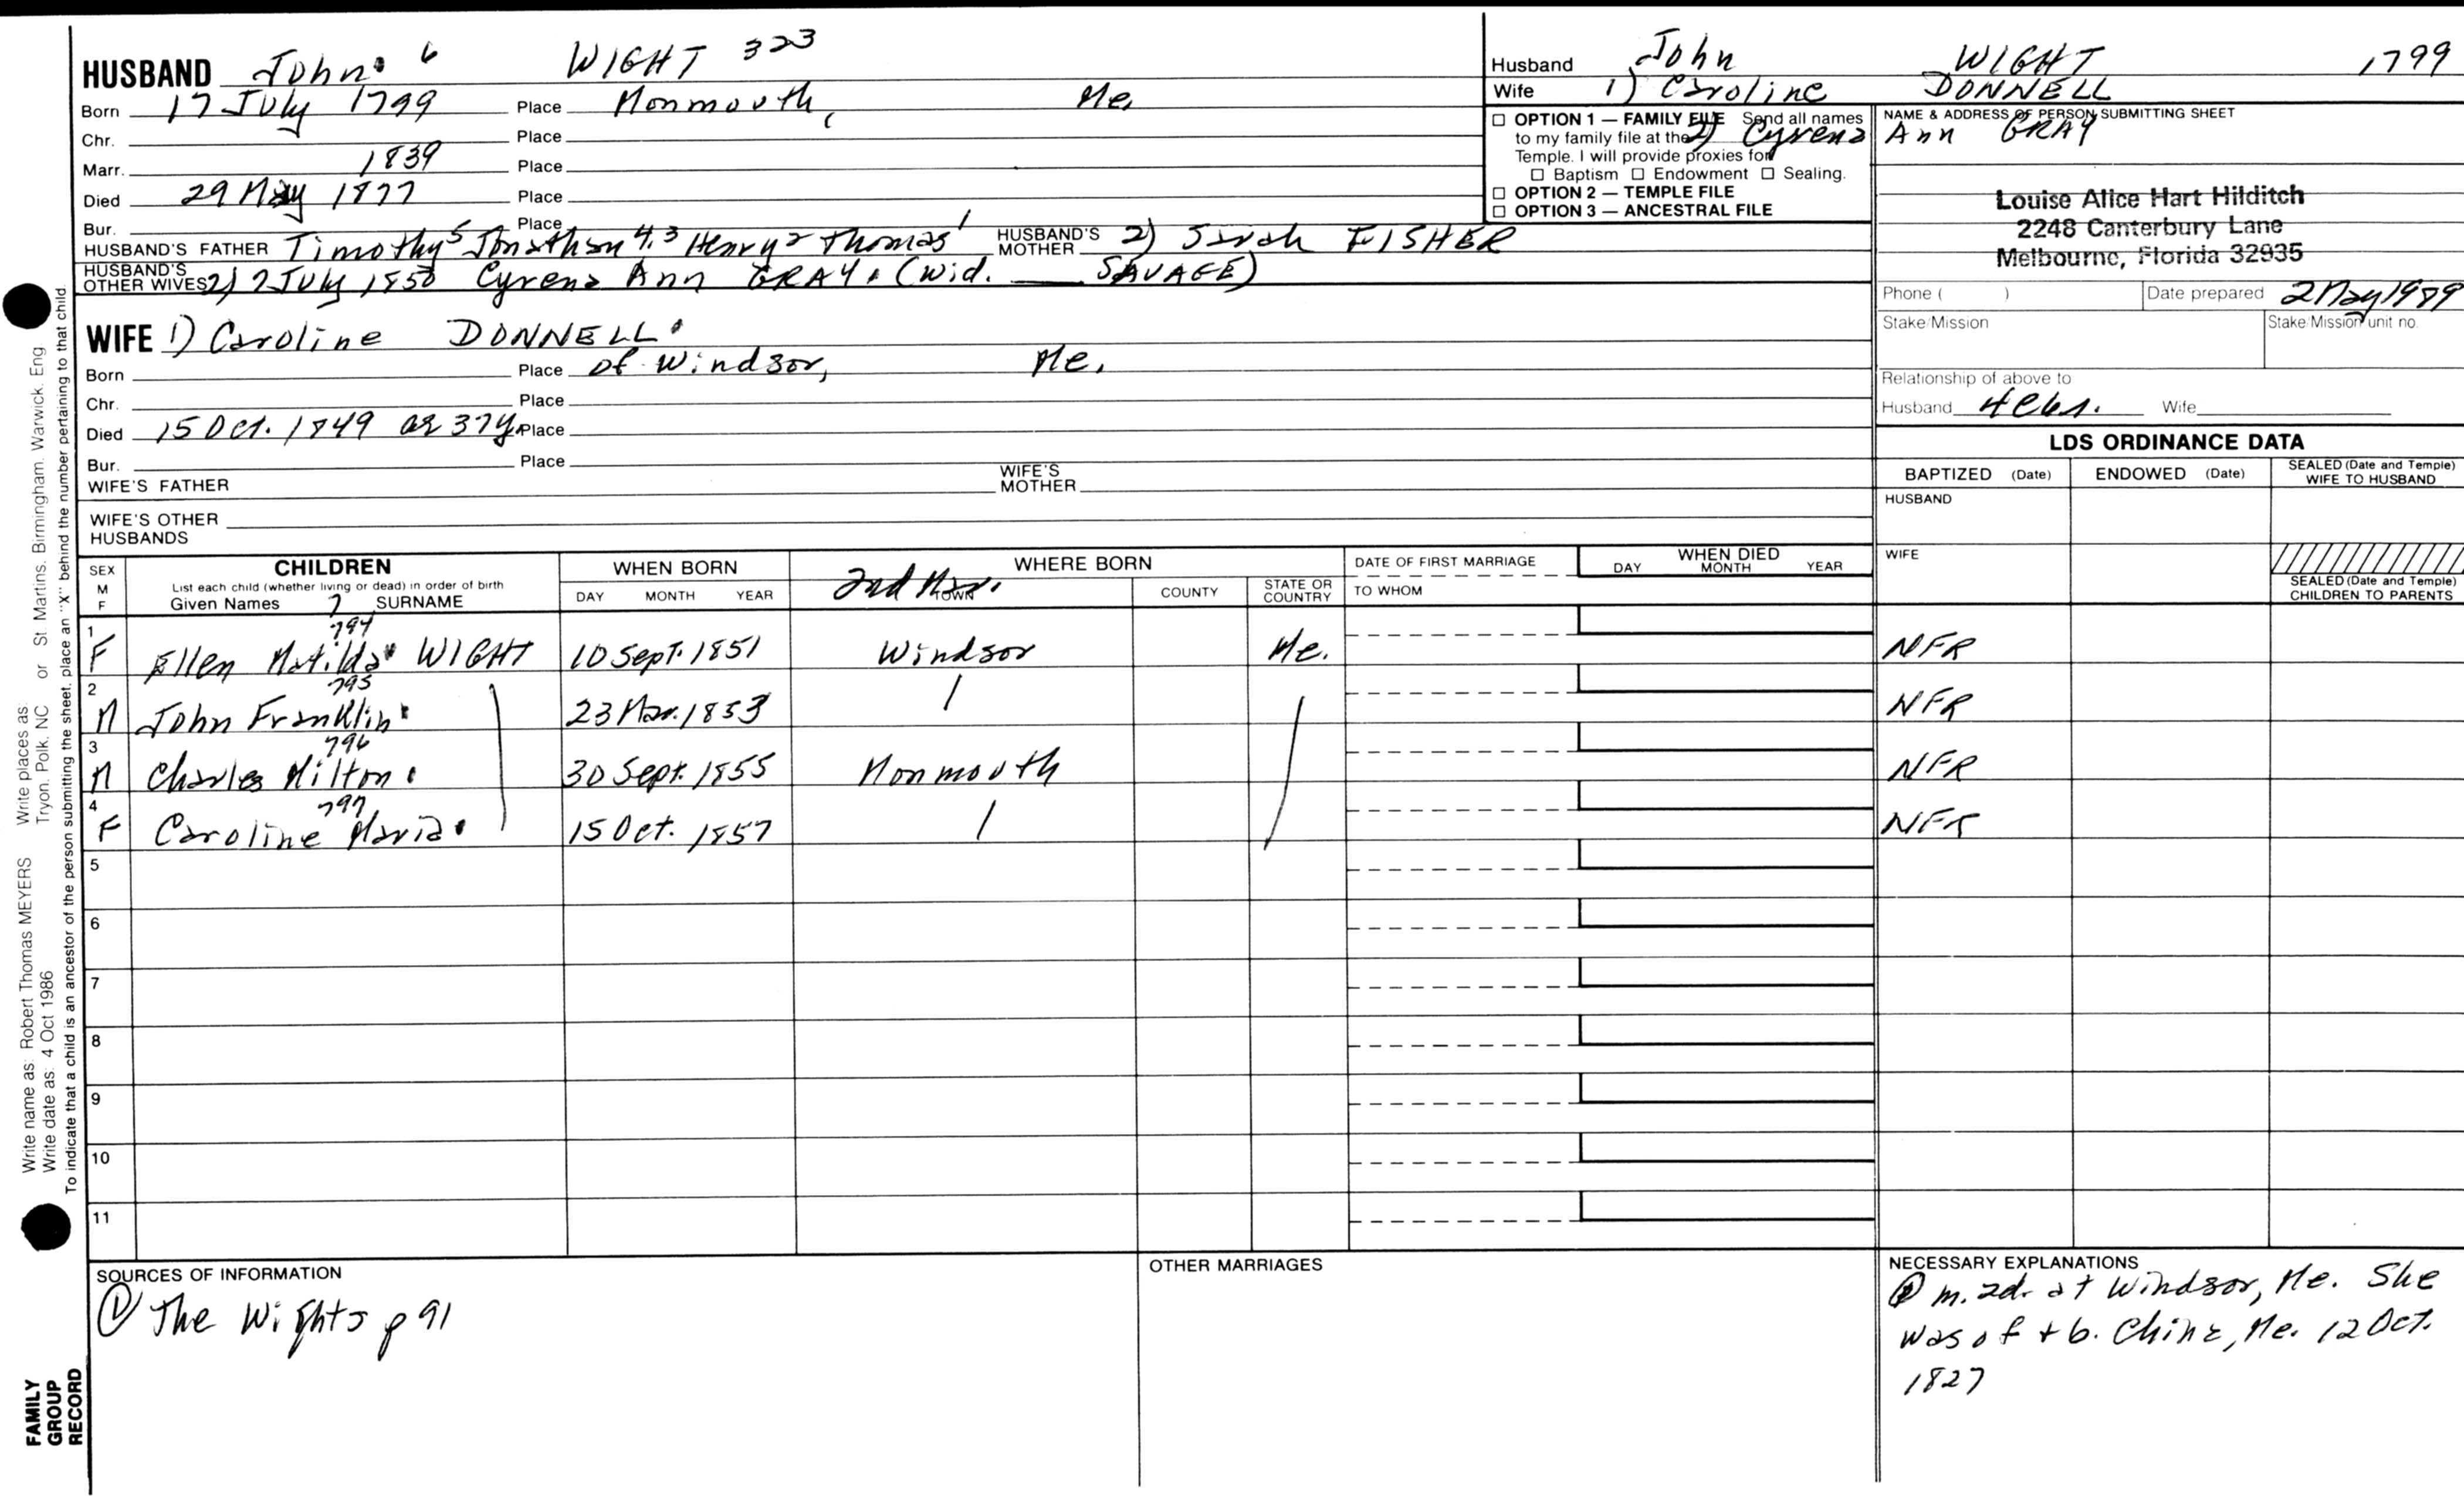 HUSBAND John 6 WIGHT 323
Born 17 July 1799 Place Monmouth, Me.
Chr. Place
Marr. 1839 Place
Died 29 May 1877 Place
Bur. Place
HUSBAND'S FATHER Timothy 5 Jonathan 4,3 Henry 2 Thomas 1 HUSBAND'S MOTHER 2) Sarah FISHER
HUSBAND'S OTHER WIVES 2) 2 July 1850 Cyrena Ann GRAY. (Wid. ___ SAVAGE)
WIFE 1) Caroline DONNELL
Born Place of Windsor, Me.
Chr. Place
Died 15 Oct. 1849 ae 37y. Place
Bur. Place
WIFE'S FATHER WIFE'S MOTHER
WIFE'S OTHER HUSBANDS
Husband John WIGHT 1799
Wife 1) Caroline DONNELL
2) Cyrena Ann GRAY
☐ OPTION 1 — FAMILY FILE Send all names
to my family file at the
Temple. I will provide proxies for
☐ Baptism ☐ Endowment ☐ Sealing.
☐ OPTION 2 — TEMPLE FILE
☐ OPTION 3 — ANCESTRAL FILE
NAME & ADDRESS OF PERSON SUBMITTING SHEET
Louise Alice Hart Hilditch
2248 Canterbury Lane
Melbourne, Florida 32935
Phone ( ) Date prepared 2 May 1989
Stake/Mission Stake/Mission unit no.
Relationship of above to
Husband 4C6r. Wife
LDS ORDINANCE DATA
BAPTIZED (Date) ENDOWED (Date) SEALED (Date and Temple) WIFE TO HUSBAND
HUSBAND
WIFE
SEALED (Date and Temple) CHILDREN TO PARENTS
SEX M F CHILDREN
List each child (whether living or dead) in order of birth
Given Names 7 SURNAME
WHEN BORN DAY MONTH YEAR
WHERE BORN 2nd Mar. TOWN COUNTY STATE OR COUNTRY
DATE OF FIRST MARRIAGE
TO WHOM
WHEN DIED DAY MONTH YEAR
794
1 F Ellen Matilda WIGHT 10 Sept. 1851 Windsor Me. NFR
795
2 M John Franklin 23 Mar. 1853 NFR
796
3 M Charles Milton 30 Sept. 1855 Monmouth NFR
797
4 F Caroline Maria 15 Oct. 1857 NFR
5
6
7
8
9
10
11
SOURCES OF INFORMATION
① The Wights p 91
OTHER MARRIAGES
NECESSARY EXPLANATIONS
m. 2d. at Windsor, Me. She
was of + b. China, Me. 12 Oct.
1827
Write name as: Robert Thomas MEYERS Write places as: Tryon, Polk, NC or St Martins, Birmingham, Warwick, Eng
Write date as: 4 Oct 1986
To indicate that a child is an ancestor of the person submitting the sheet, place an "X" behind the number pertaining to that child.
FAMILY
GROUP
RECORD